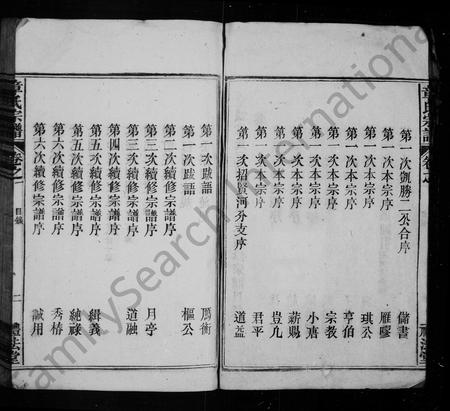 章氏宗譜
卷之一
禮法堂
第一次凱勝二公合序 儲書
第一次本宗序 雁廖
第一次本宗序 琪公
第一次本宗序 亨伯
第一次本宗序 宗教
第一次本宗序 小唐
第一次本宗序 薪賜
第一次本宗序 豈凡
第一次本宗序 君平
第一次招賢河分支序 道益
第一次跋語
第二次跋語 樞公
第二次續修宗譜序
第三次續修宗譜序 月亭
第三次續修宗譜序 道融
第四次續修宗譜序
第五次續修宗譜序 緝義
第五次續修宗譜序 純祿
第六次續修宗譜序 秀椿
第六次續修宗譜序 誠用
章氏宗譜
卷之一
目錄
二
禮法堂
FamilySearch International